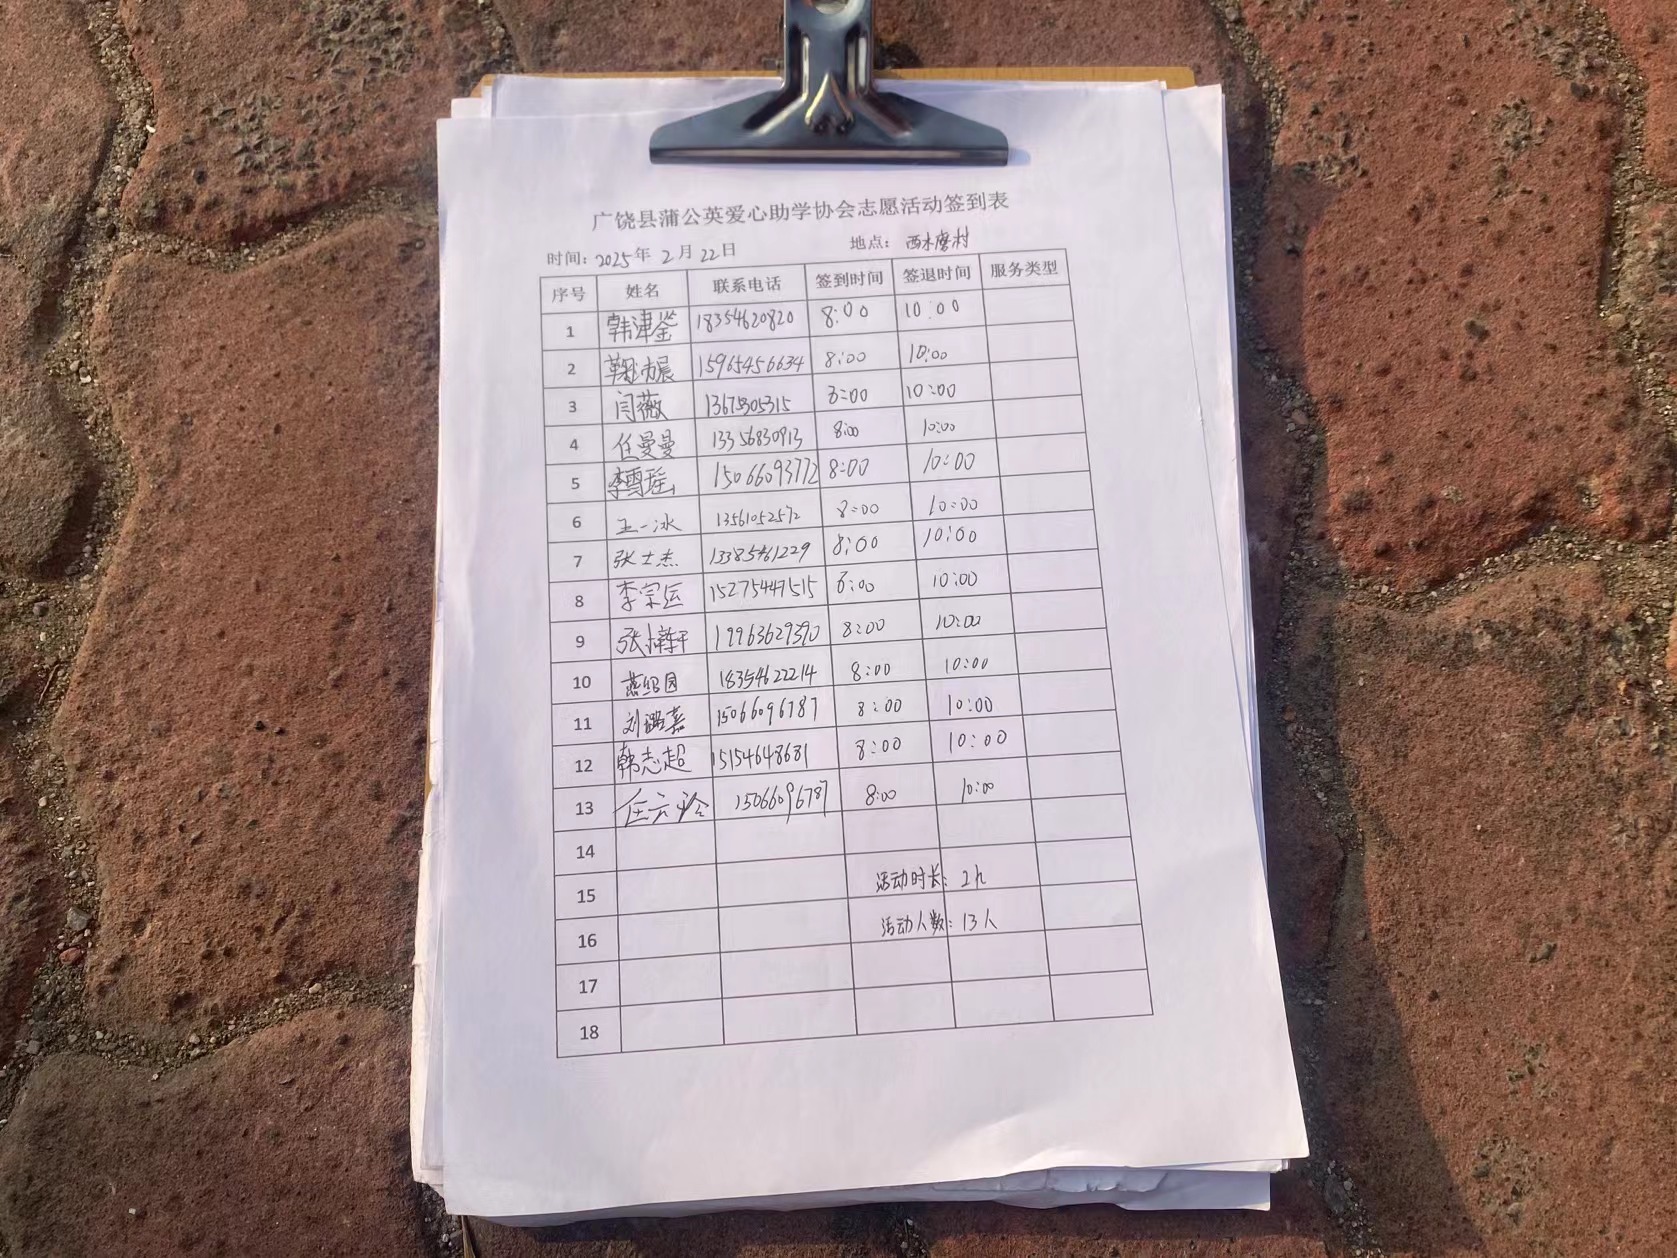 广饶县蒲公英爱心助学协会志愿活动签到表
时间：2025年 2月 22日 地点：西水磨村
序号 姓名 联系电话 签到时间 签退时间 服务类型
1 韩津鉴 18354620820 8:00 10:00
2 15965456634 8:00 10:00
3 闫薇 8:00 10:00
4 任曼曼 13356830913 8:00 10:00
5 李雪瑶 15066093772 8:00 10:00
6 王一冰 13561052572 8:00 10:00
7 张士杰 13385461229 8:00 10:00
8 李宗运 15275447515 8:00 10:00
9 张 19963629390 8:00 10:00
10 18354622214 8:00 10:00
11 刘璐嘉 15066096787 8:00 10:00
12 韩志超 15154648681 8:00 10:00
13 15066096787 8:00 10:00
14
15 活动时长：2h
16 活动人数：13人
17
18